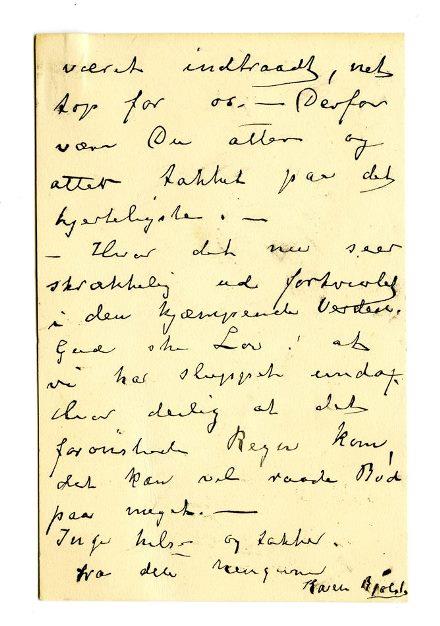 været indtraadt, net
top for os. — Derfor
vær Du atter og
atter takket paa det
hjerteligste. —
— Hvor det nu seer
skrækkelig ud fortvivlet
i den kjæmpende Verden.
Gud ske Lov! at
vi har sluppet
Hvor deilig at det
forønskede Regn kom,
det kan vel raade Bod
paa meget. —
Inge hils– og takker.
fra den hengivne
Karen